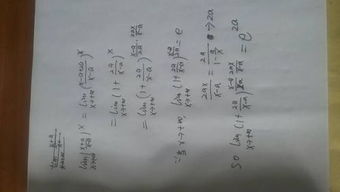 lim (x+a / x-a)^x = lim (x-a+2a / x-a)^x
x→+∞ x→+∞
= lim (1 + 2a/x-a)^x
x→+∞
= lim (1 + 2a/x-a)^{x-a/2a · 2ax/x-a}
x→+∞
∵当 x→+∞, lim (1 + 2a/x-a)^{x-a/2a} = e
2ax/x-a = 2a/1-a/x → 2a
so lim (1 + 2a/x-a)^{x-a/2a · 2ax/x-a} = e^{2a}
x→+∞